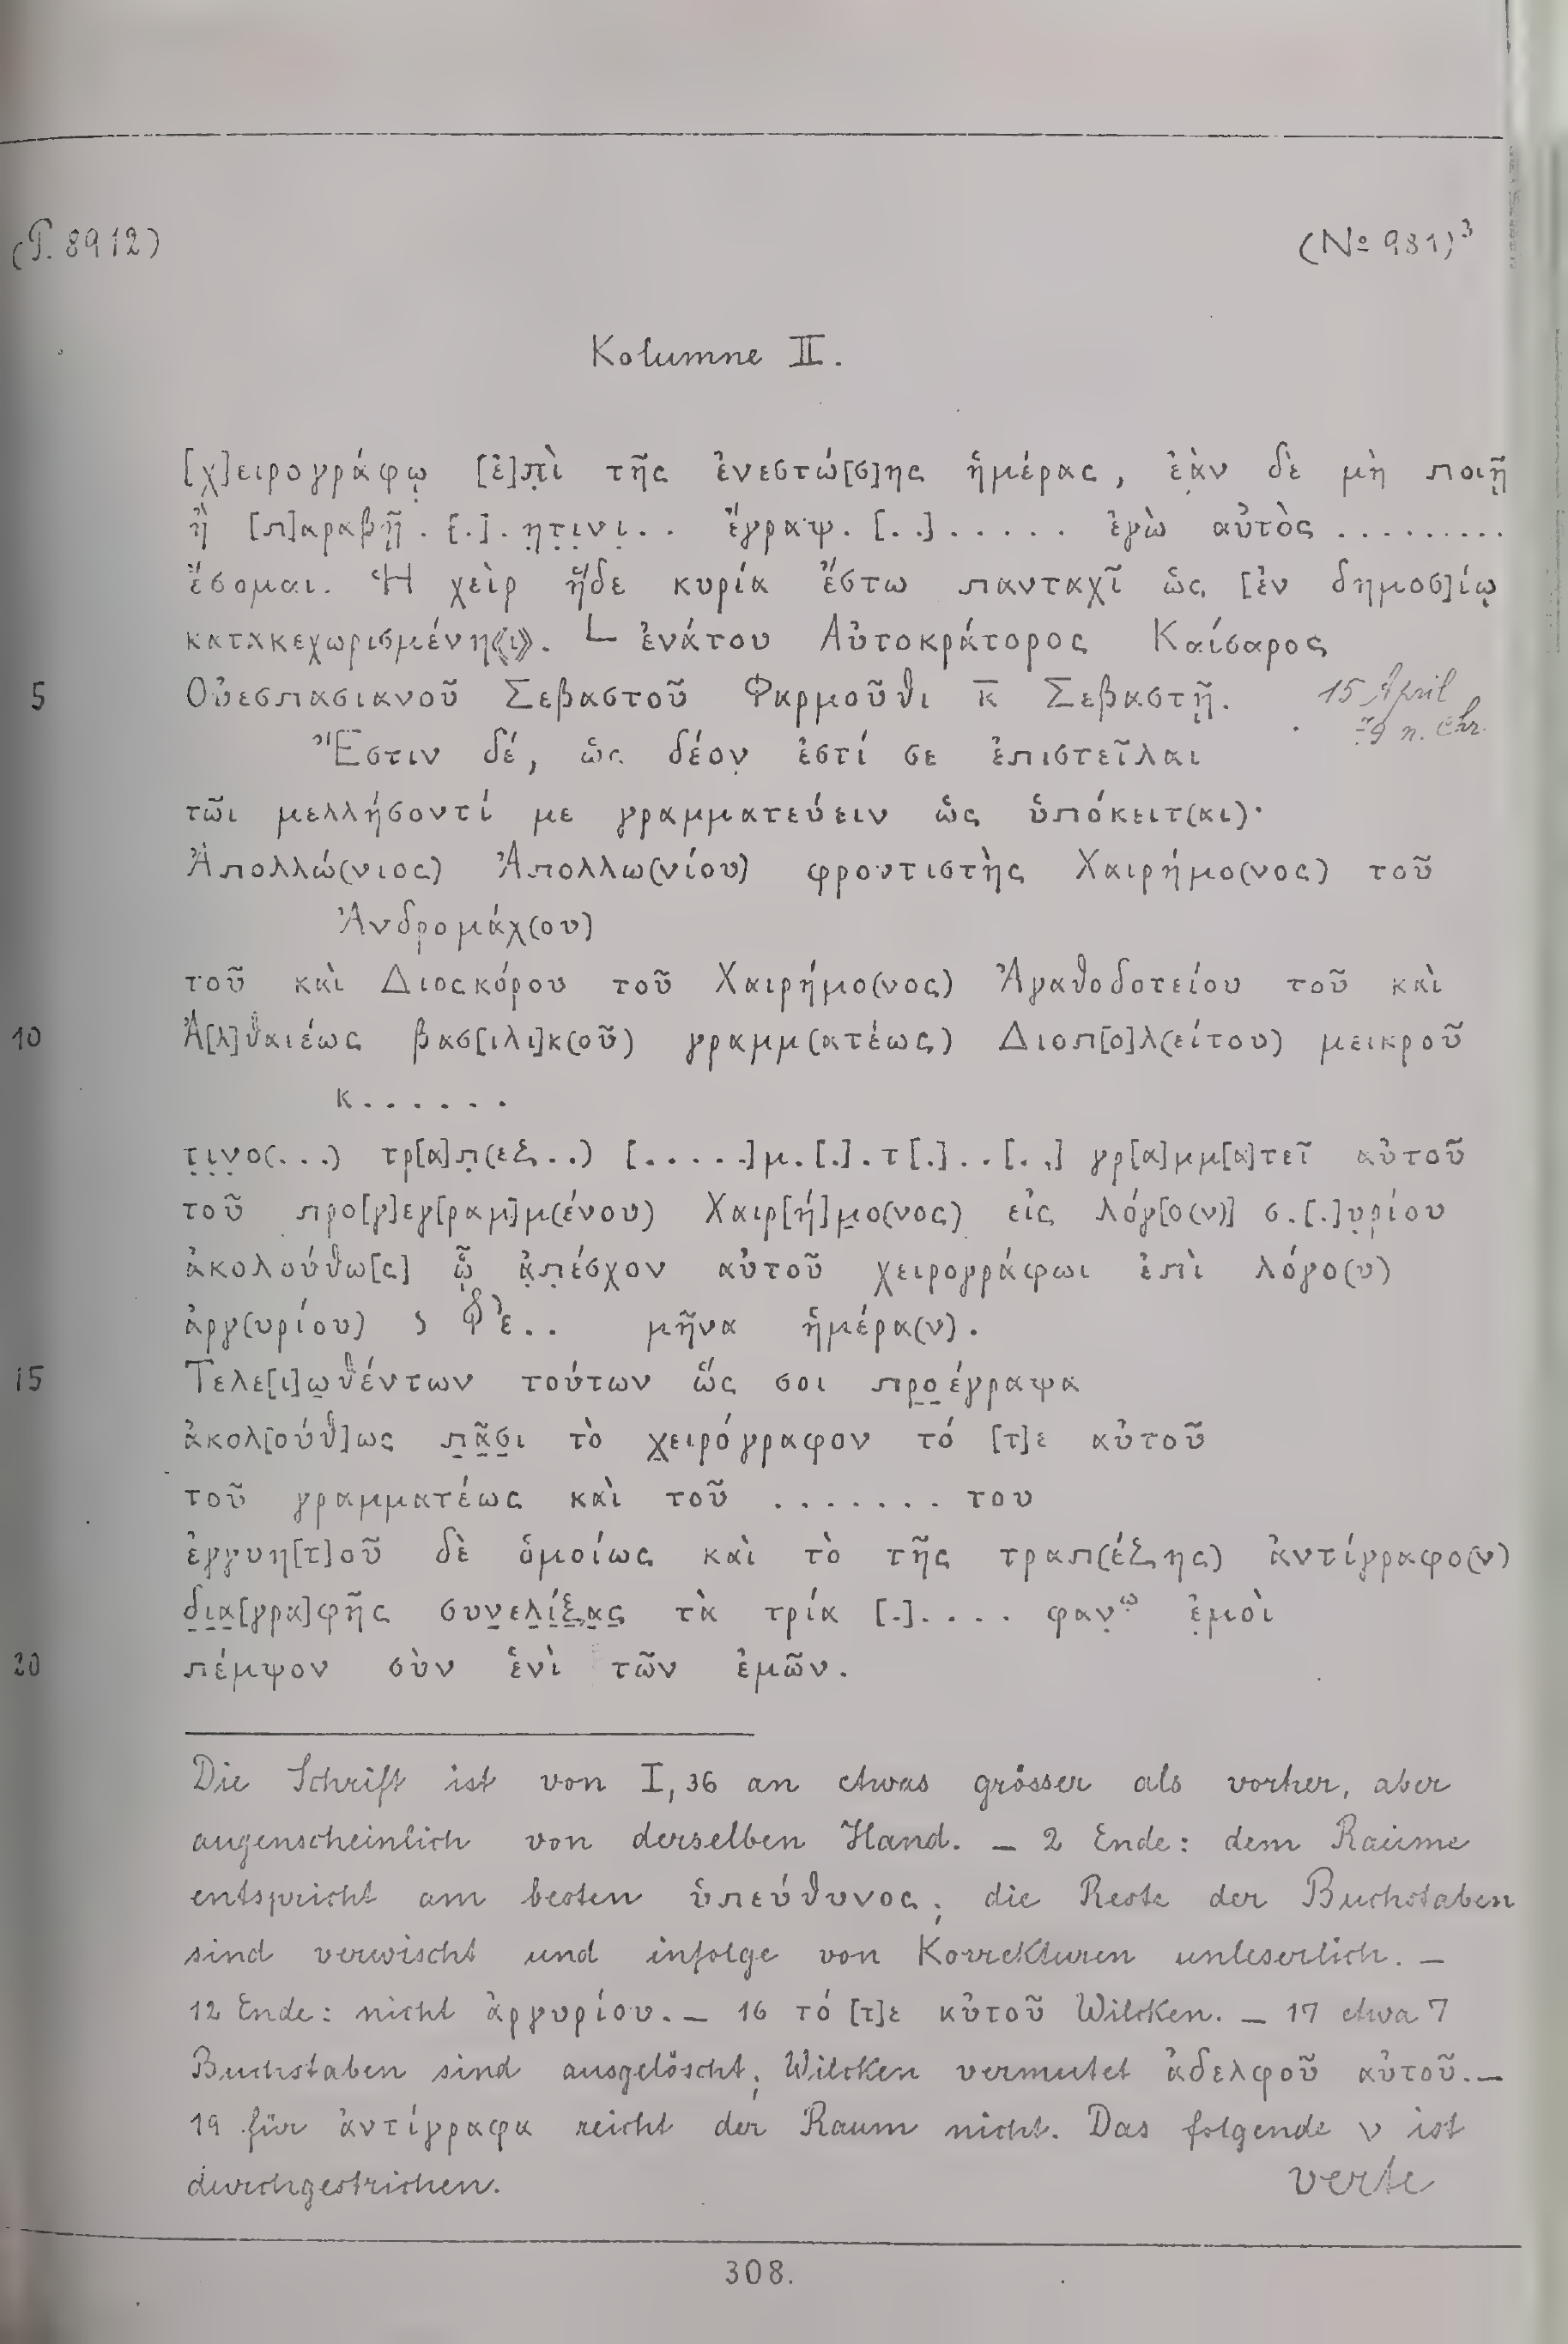 (P. 8912) (No 981)³
Kolumne II.
[χ]ειρογράφῳ [ἐ]π̣ὶ τῆς ἐνεστώ[σ]ης ἡμέρας, ἐὰν δὲ μὴ ποιῇ
ἢ [π]αραβῇ . [.] . η̣τ̣ι̣νι̣ . . ἔγραψ . [. .] . . . . . ἐγὼ αὐτὸς . . . . . . . . .
ἔσομαι. Ἡ χεὶρ ἥδε κυρία ἔστω πανταχῖ ὡς [ἐν δημοσ]ίῳ
κατακεχωρισμένη⟪ι⟫. L ἐνάτου Αὐτοκράτορος Καίσαρος
5 Οὐεσπασιανοῦ Σεβαστοῦ Φαρμοῦθι κ̅ Σεβαστῇ. 15 April
79 n. Chr.
Ἔστιν δέ, ὡς δέον ἐστί σε ἐπιστεῖλαι
τῶι μελλήσοντί με γραμματεύειν ὡς ὑπόκειτ(αι)·
Ἀπολλώ(νιος) Ἀπολλω(νίου) φροντιστὴς Χαιρήμο(νος) τοῦ
Ἀνδρομάχ(ου)
τοῦ καὶ Διοσκόρου τοῦ Χαιρήμο(νος) Ἀγαθοδοτείου τοῦ καὶ
10 Ἀ[λ]θαιέως βασ[ιλι]κ(οῦ) γραμμ(ατέως) Διοπ[ο]λ(είτου) μεικροῦ
κ . . . . . .
τ̣ι̣ν̣ο(. . .) τρ[α]π̣(εζ . .) [. . . . .]μ . [.] . τ[.] . . [. .] γρ[α]μμ[α]τεῖ αὐτοῦ
τοῦ προ[γ]εγ[ραμ]μ(ένου) Χαιρ[ή]μ̣ο(νος) εἰς λόγ[ο(ν)] σ . [.]υ̣ρίου
ἀκολούθω[ς] ᾧ ἀ̣π̣έσχον αὐτοῦ χειρογράφωι ἐπὶ λόγο(υ)
ἀργ(υρίου) . . μῆνα ἡμέρα(ν).
15 Τελε[ι]ω̣θέντων τούτων ὥς σοι πρ̣ο̣έγραψα
ἀκολ[ούθ]ως π̣ᾶ̣σ̣ι τὸ χ̣ειρόγραφον τό [τ]ε αὐτοῦ
τοῦ γραμματέως καὶ τοῦ . . . . . . . του
ἐγγυη[τ]οῦ δὲ ὁμοίως καὶ τὸ τῆς τραπ(έζης) ἀντίγραφο(ν)
δ̣ι̣α̣[γρα]φῆς συν̣ε̣λ̣ί̣ξ̣α̣ς̣ τὰ τρία [.] . . . . φαν̣ω ἐ̣μοὶ
20 πέμψον σὺν ἑνὶ τῶν ἐμῶν.
Die Schrift ist von I, 36 an etwas grösser als vorher, aber
augenscheinlich von derselben Hand. – 2 Ende: dem Raume
entspricht am besten ὑπεύθυνος; die Reste der Buchstaben
sind verwischt und infolge von Korrekturen unleserlich. –
12 Ende: nicht ἀργυρίου. – 16 τό [τ]ε αὐτοῦ Wilcken. – 17 etwa 7
Buchstaben sind ausgelöscht; Wilcken vermutet ἀδελφοῦ αὐτοῦ. –
19 für ἀντίγραφα reicht der Raum nicht. Das folgende ν ist
durchgestrichen. verte
308.